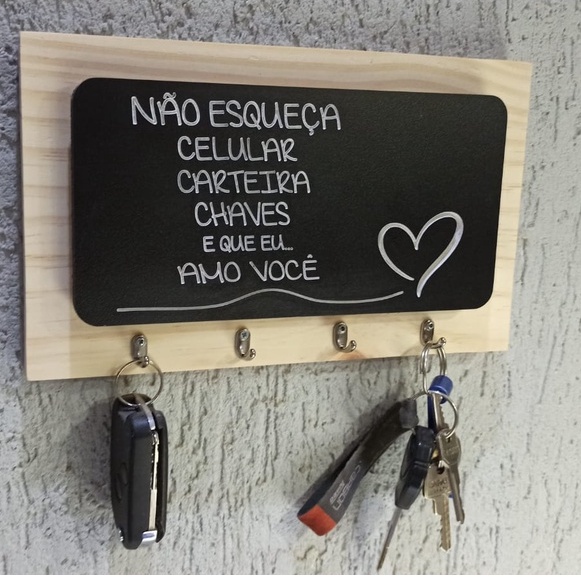 NÃO ESQUEÇA
CELULAR
CARTEIRA
CHAVES
E QUE EU...
AMO VOCÊ